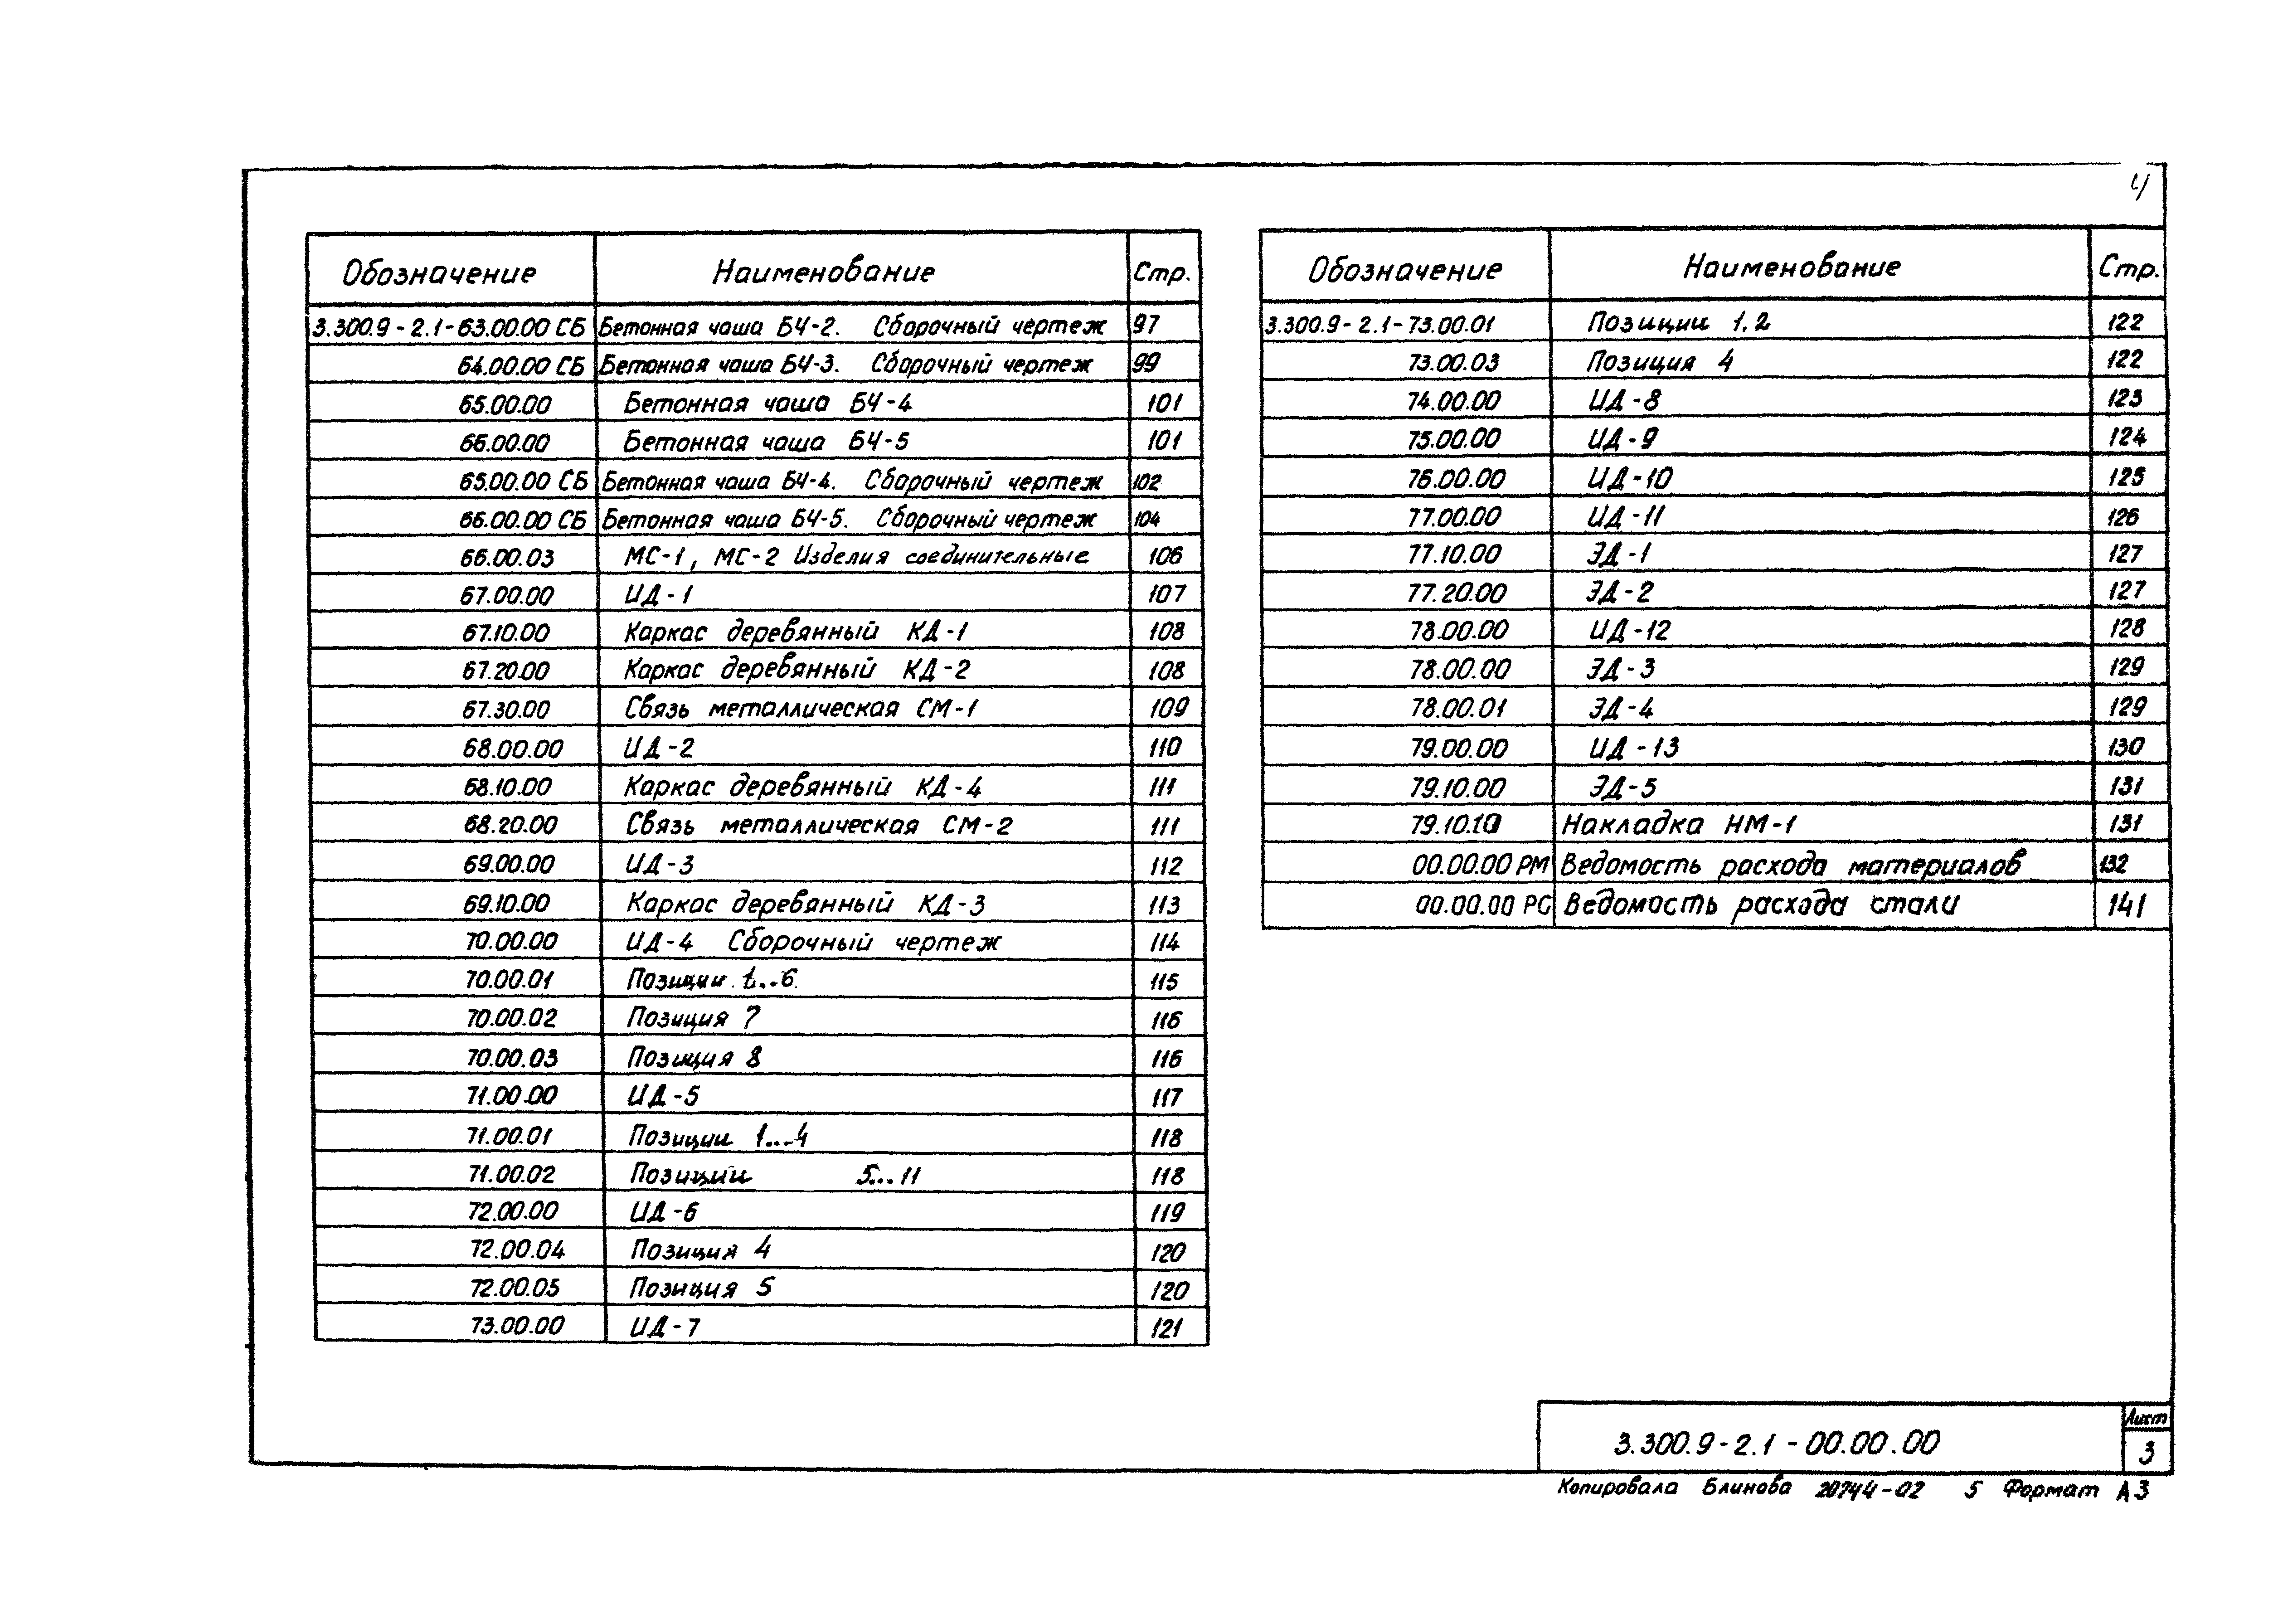 4
Обозначение Наименование Стр.
3.300.9-2.1-63.00.00 СБ Бетонная чаша БЧ-2. Сборочный чертеж 97
64.00.00 СБ Бетонная чаша БЧ-3. Сборочный чертеж 99
65.00.00 Бетонная чаша БЧ-4 101
66.00.00 Бетонная чаша БЧ-5 101
65.00.00 СБ Бетонная чаша БЧ-4. Сборочный чертеж 102
66.00.00 СБ Бетонная чаша БЧ-5. Сборочный чертеж 104
66.00.03 МС-1, МС-2 Изделия соединительные 106
67.00.00 ИД-1 107
67.10.00 Каркас деревянный КД-1 108
67.20.00 Каркас деревянный КД-2 108
67.30.00 Связь металлическая СМ-1 109
68.00.00 ИД-2 110
68.10.00 Каркас деревянный КД-4 111
68.20.00 Связь металлическая СМ-2 111
69.00.00 ИД-3 112
69.10.00 Каркас деревянный КД-3 113
70.00.00 ИД-4 Сборочный чертеж 114
70.00.01 Позиции 1...6 115
70.00.02 Позиция 7 116
70.00.03 Позиция 8 116
71.00.00 ИД-5 117
71.00.01 Позиции 1...4 118
71.00.02 Позиции 5...11 118
72.00.00 ИД-6 119
72.00.04 Позиция 4 120
72.00.05 Позиция 5 120
73.00.00 ИД-7 121
Обозначение Наименование Стр.
3.300.9-2.1-73.00.01 Позиции 1,2 122
73.00.03 Позиция 4 122
74.00.00 ИД-8 123
75.00.00 ИД-9 124
76.00.00 ИД-10 125
77.00.00 ИД-11 126
77.10.00 ЭД-1 127
77.20.00 ЭД-2 127
78.00.00 ИД-12 128
78.00.00 ЭД-3 129
78.00.01 ЭД-4 129
79.00.00 ИД-13 130
79.10.00 ЭД-5 131
79.10.10 Накладка НМ-1 131
00.00.00 РМ Ведомость расхода материалов 132
00.00.00 РС Ведомость расхода стали 141
3.300.9-2.1-00.00.00
Лист
3
Копировала Блинова 20744-02 5 Формат А3